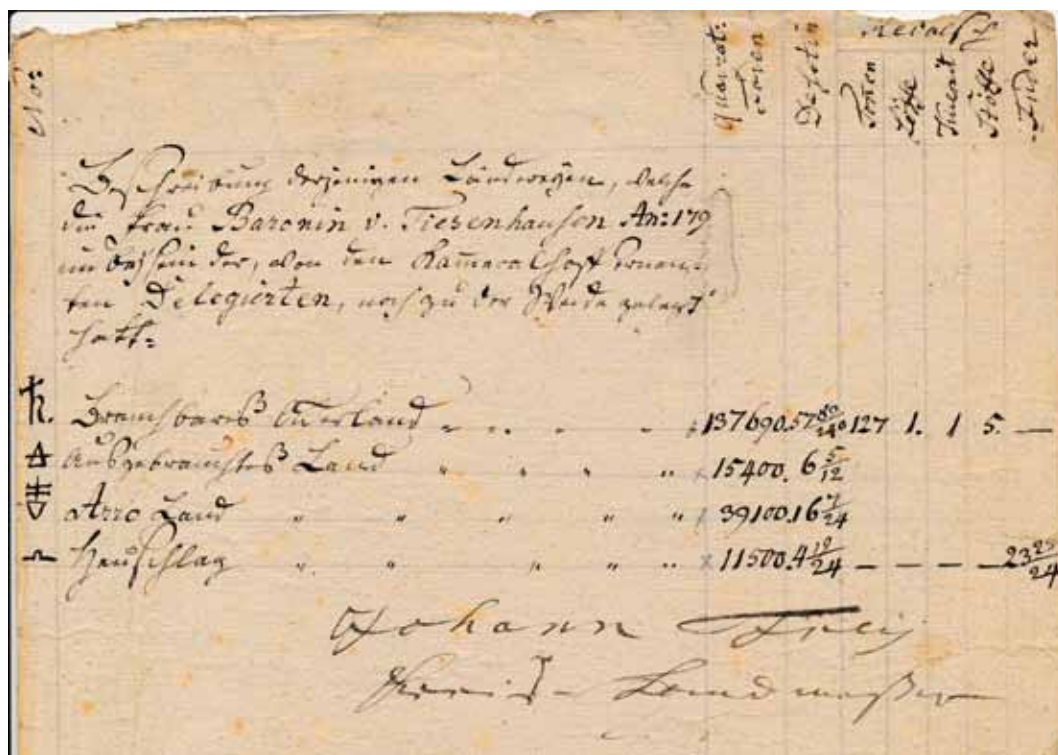 No:
Quadrat:
Loeen
Desetin
Tonen
Löffe
Stöffe
Fuder
Beschreibung derjenigen Ländereyen, welche
die Frau Baronin v. Tiesenhausen An: 179
im der, von den Kammeralhoff ernann
ten Delegirten, noch zu der Weide gelegt
hatt:
Brauchbares Land " " " " 137690. 57 80/240 127 1. 1 5. —
Ausgebrauchtes Land " " " " 15400. 6 5/12
Arro Land " " " " " 39100. 16 7/24
Heuschlag " " " " " 11500. 4 19/24 — — — — 23 23/24
Johann
Kreis-Landmesser